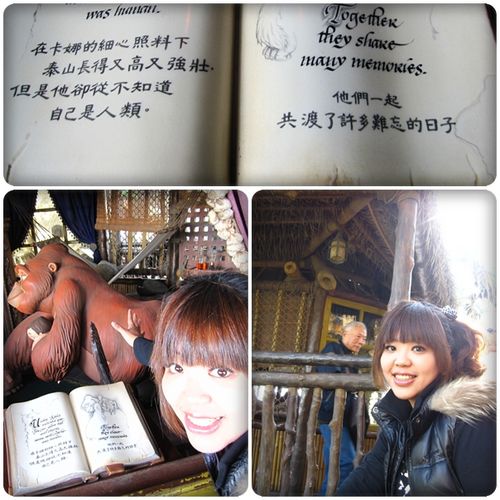 was human.
在卡娜的細心照料下
泰山長得又高又強壯.
但是他卻從不知道
自己是人類。
Together
they share
many memories.
他們一起
共渡了許多難忘的日子
Together
they share
many memories.